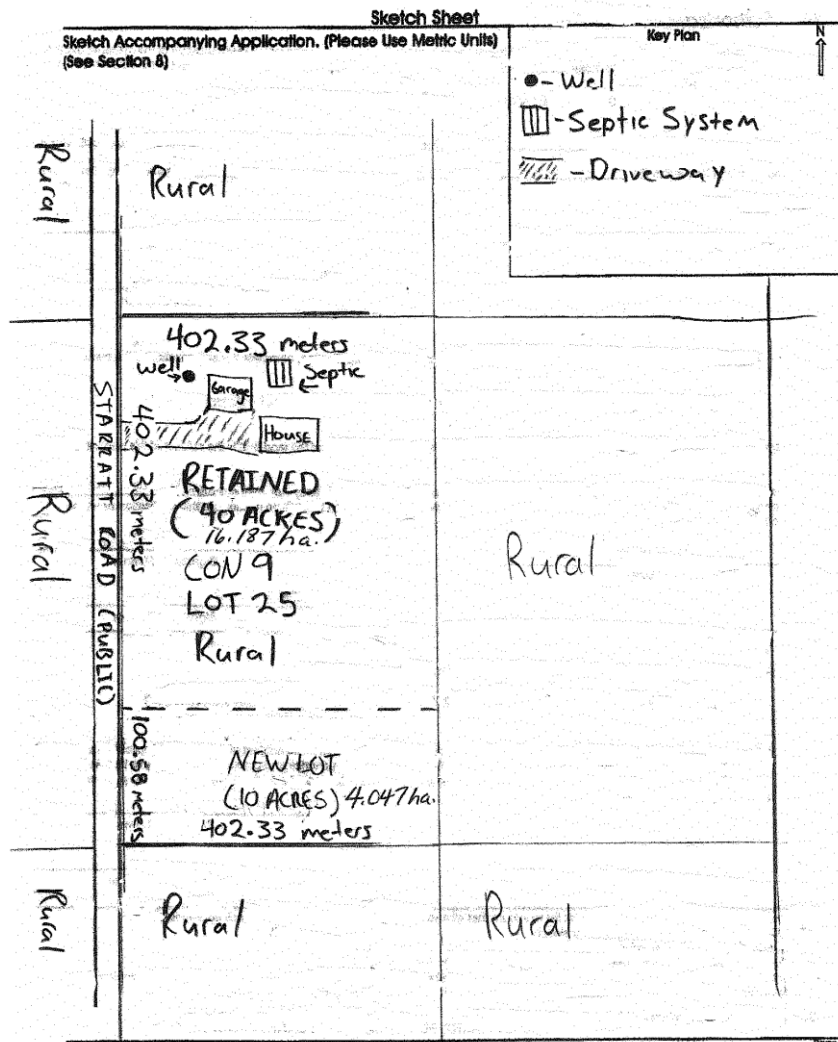 Sketch Sheet
Sketch Accompanying Application. (Please Use Metric Units)
(See Section 8)
Key Plan
N
- Well
- Septic System
- Driveway
Rural
Rural
402.33 meters
Well
Septic
Garage
House
STARRATT ROAD (PUBLIC)
402.33 meters
RETAINED
(40 ACRES)
16.187 ha.
CON 9
LOT 25
Rural
Rural
Rural
100.58 meters
NEW LOT
(10 ACRES) 4.047 ha.
402.33 meters
Rural
Rural
Rural